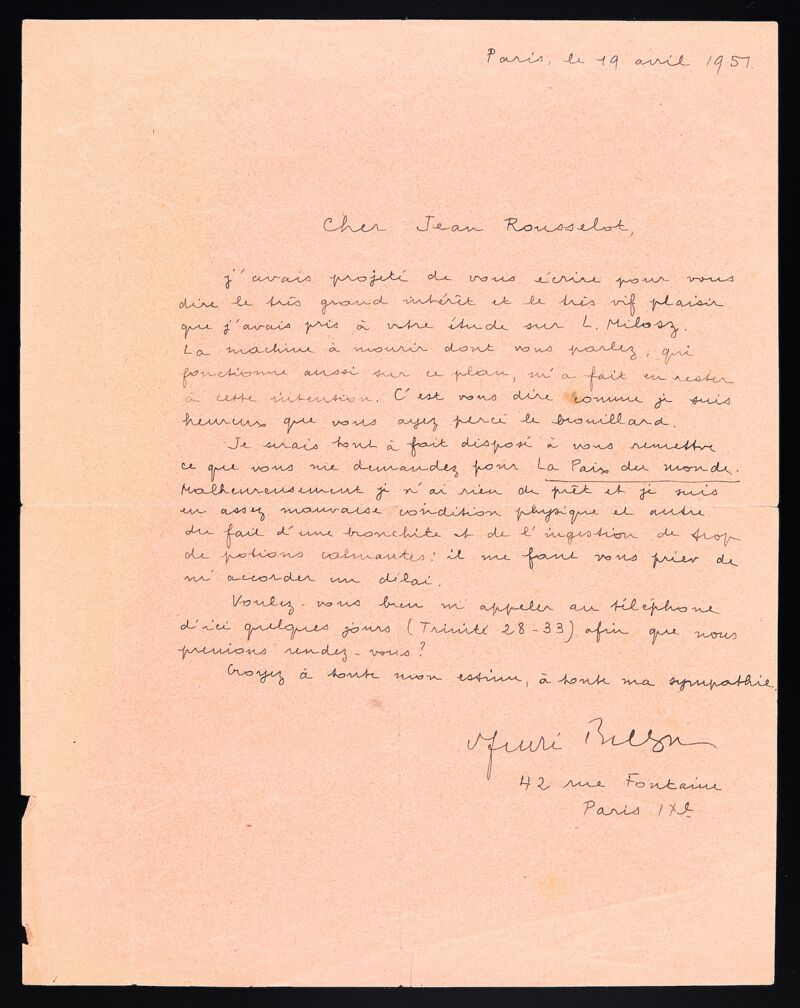 Paris, le 19 avril 1951.
Cher Jean Rousselot,
j'avais projeté de vous écrire pour vous
dire le très grand intérêt et le très vif plaisir
que j'avais pris à votre étude sur L. Milosz.
La machine à mourir dont vous parlez, qui
fonctionne aussi sur ce plan, m'a fait en rester
à cette intention. C'est vous dire comme je suis
heureux que vous ayez percé le brouillard.
Je serais tout à fait disposé à vous remettre
ce que vous me demandez pour La Paix du monde.
Malheureusement je n'ai rien de prêt et je suis
en assez mauvaise condition physique et autre
du fait d'une bronchite et de l'ingestion de trop
de potions calmantes : il me faut vous prier de
m'accorder un délai.
Voulez-vous bien m'appeler au téléphone
d'ici quelques jours (Trinité 28-33) afin que nous
prenions rendez-vous ?
Croyez à toute mon estime, à toute ma sympathie.
42 rue Fontaine
Paris IXe